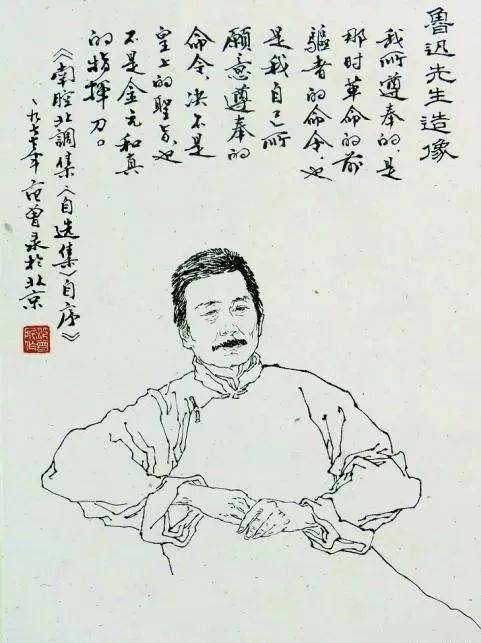 魯迅先生造像
我所遵奉的,是
那时革命的前
驱者的命令,也
是我自己所
願意遵奉的
命令,决不是
皇上的聖旨,也
不是金元和真
的指揮刀。
《南腔北調集《自选集》自序》
一九七七年范曾录於北京